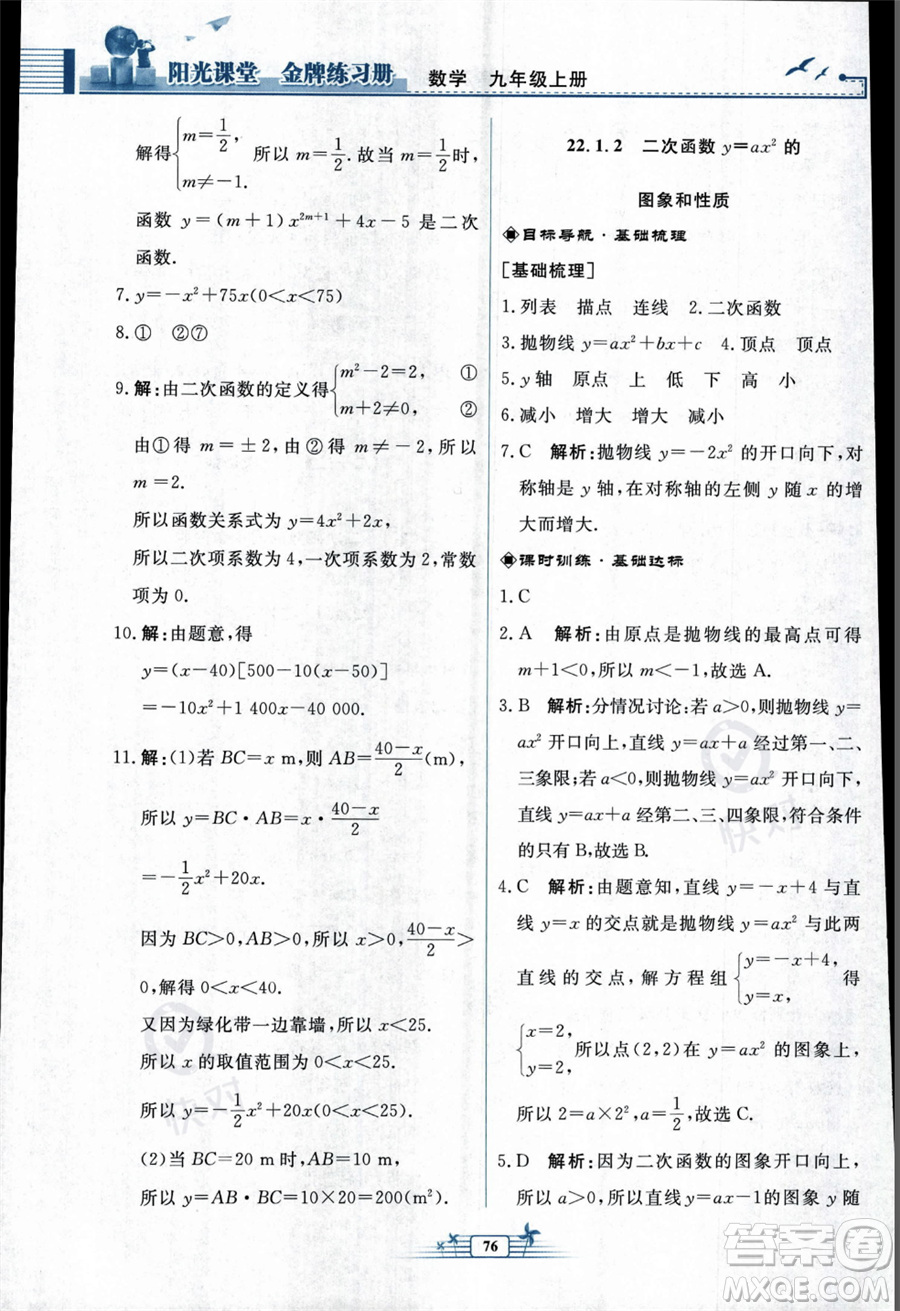 阳光课堂 金牌练习册 数学 九年级上册
解得{m=1/2, m≠-1. 所以 m=1/2.故当 m=1/2时,
函数 y=(m+1)x^{2m+1}+4x-5 是二次
函数.
7.y=-x²+75x(0<x<75)
8.① ②⑦
9.解:由二次函数的定义得{m²-2=2, ① m+2≠0, ②
由①得 m=±2,由②得 m≠-2,所以
m=2.
所以函数关系式为 y=4x²+2x,
所以二次项系数为 4,一次项系数为 2,常数
项为 0.
10.解:由题意,得
y=(x-40)[500-10(x-50)]
=-10x²+1 400x-40 000.
11.解:(1)若 BC=x m,则 AB=(40-x)/2(m),
所以 y=BC·AB=x·(40-x)/2
=-1/2x²+20x.
因为 BC>0,AB>0,所以 x>0,(40-x)/2>
0,解得 0<x<40.
又因为绿化带一边靠墙,所以 x<25.
所以 x 的取值范围为 0<x<25.
所以 y=-1/2x²+20x(0<x<25).
(2)当 BC=20 m 时,AB=10 m,
所以 y=AB·BC=10×20=200(m²)
22.1.2 二次函数 y=ax² 的
图象和性质
目标导航·基础梳理
[基础梳理]
1.列表 描点 连线 2.二次函数
3.抛物线 y=ax²+bx+c 4.顶点 顶点
5.y 轴 原点 上 低 下 高 小
6.减小 增大 增大 减小
7.C 解析:抛物线 y=-2x² 的开口向下,对
称轴是 y 轴,在对称轴的左侧 y 随 x 的增
大而增大.
课时训练·基础达标
1.C
2.A 解析:由原点是抛物线的最高点可得
m+1<0,所以 m<-1,故选 A.
3.B 解析:分情况讨论:若 a>0,则抛物线 y=
ax² 开口向上,直线 y=ax+a 经过第一、二、
三象限;若 a<0,则抛物线 y=ax² 开口向下,
直线 y=ax+a 经第二、三、四象限,符合条件
的只有 B,故选 B.
4.C 解析:由题意知,直线 y=-x+4 与直
线 y=x 的交点就是抛物线 y=ax² 与此两
直线的交点,解方程组{y=-x+4, y=x, 得
{x=2, y=2. 所以点(2,2)在 y=ax² 的图象上,
所以 2=a×2²,a=1/2,故选 C.
5.D 解析:因为二次函数的图象开口向上,
所以 a>0,所以直线 y=ax-1的图象 y 随
76
快对
快对
答案圈
MXQE.COM